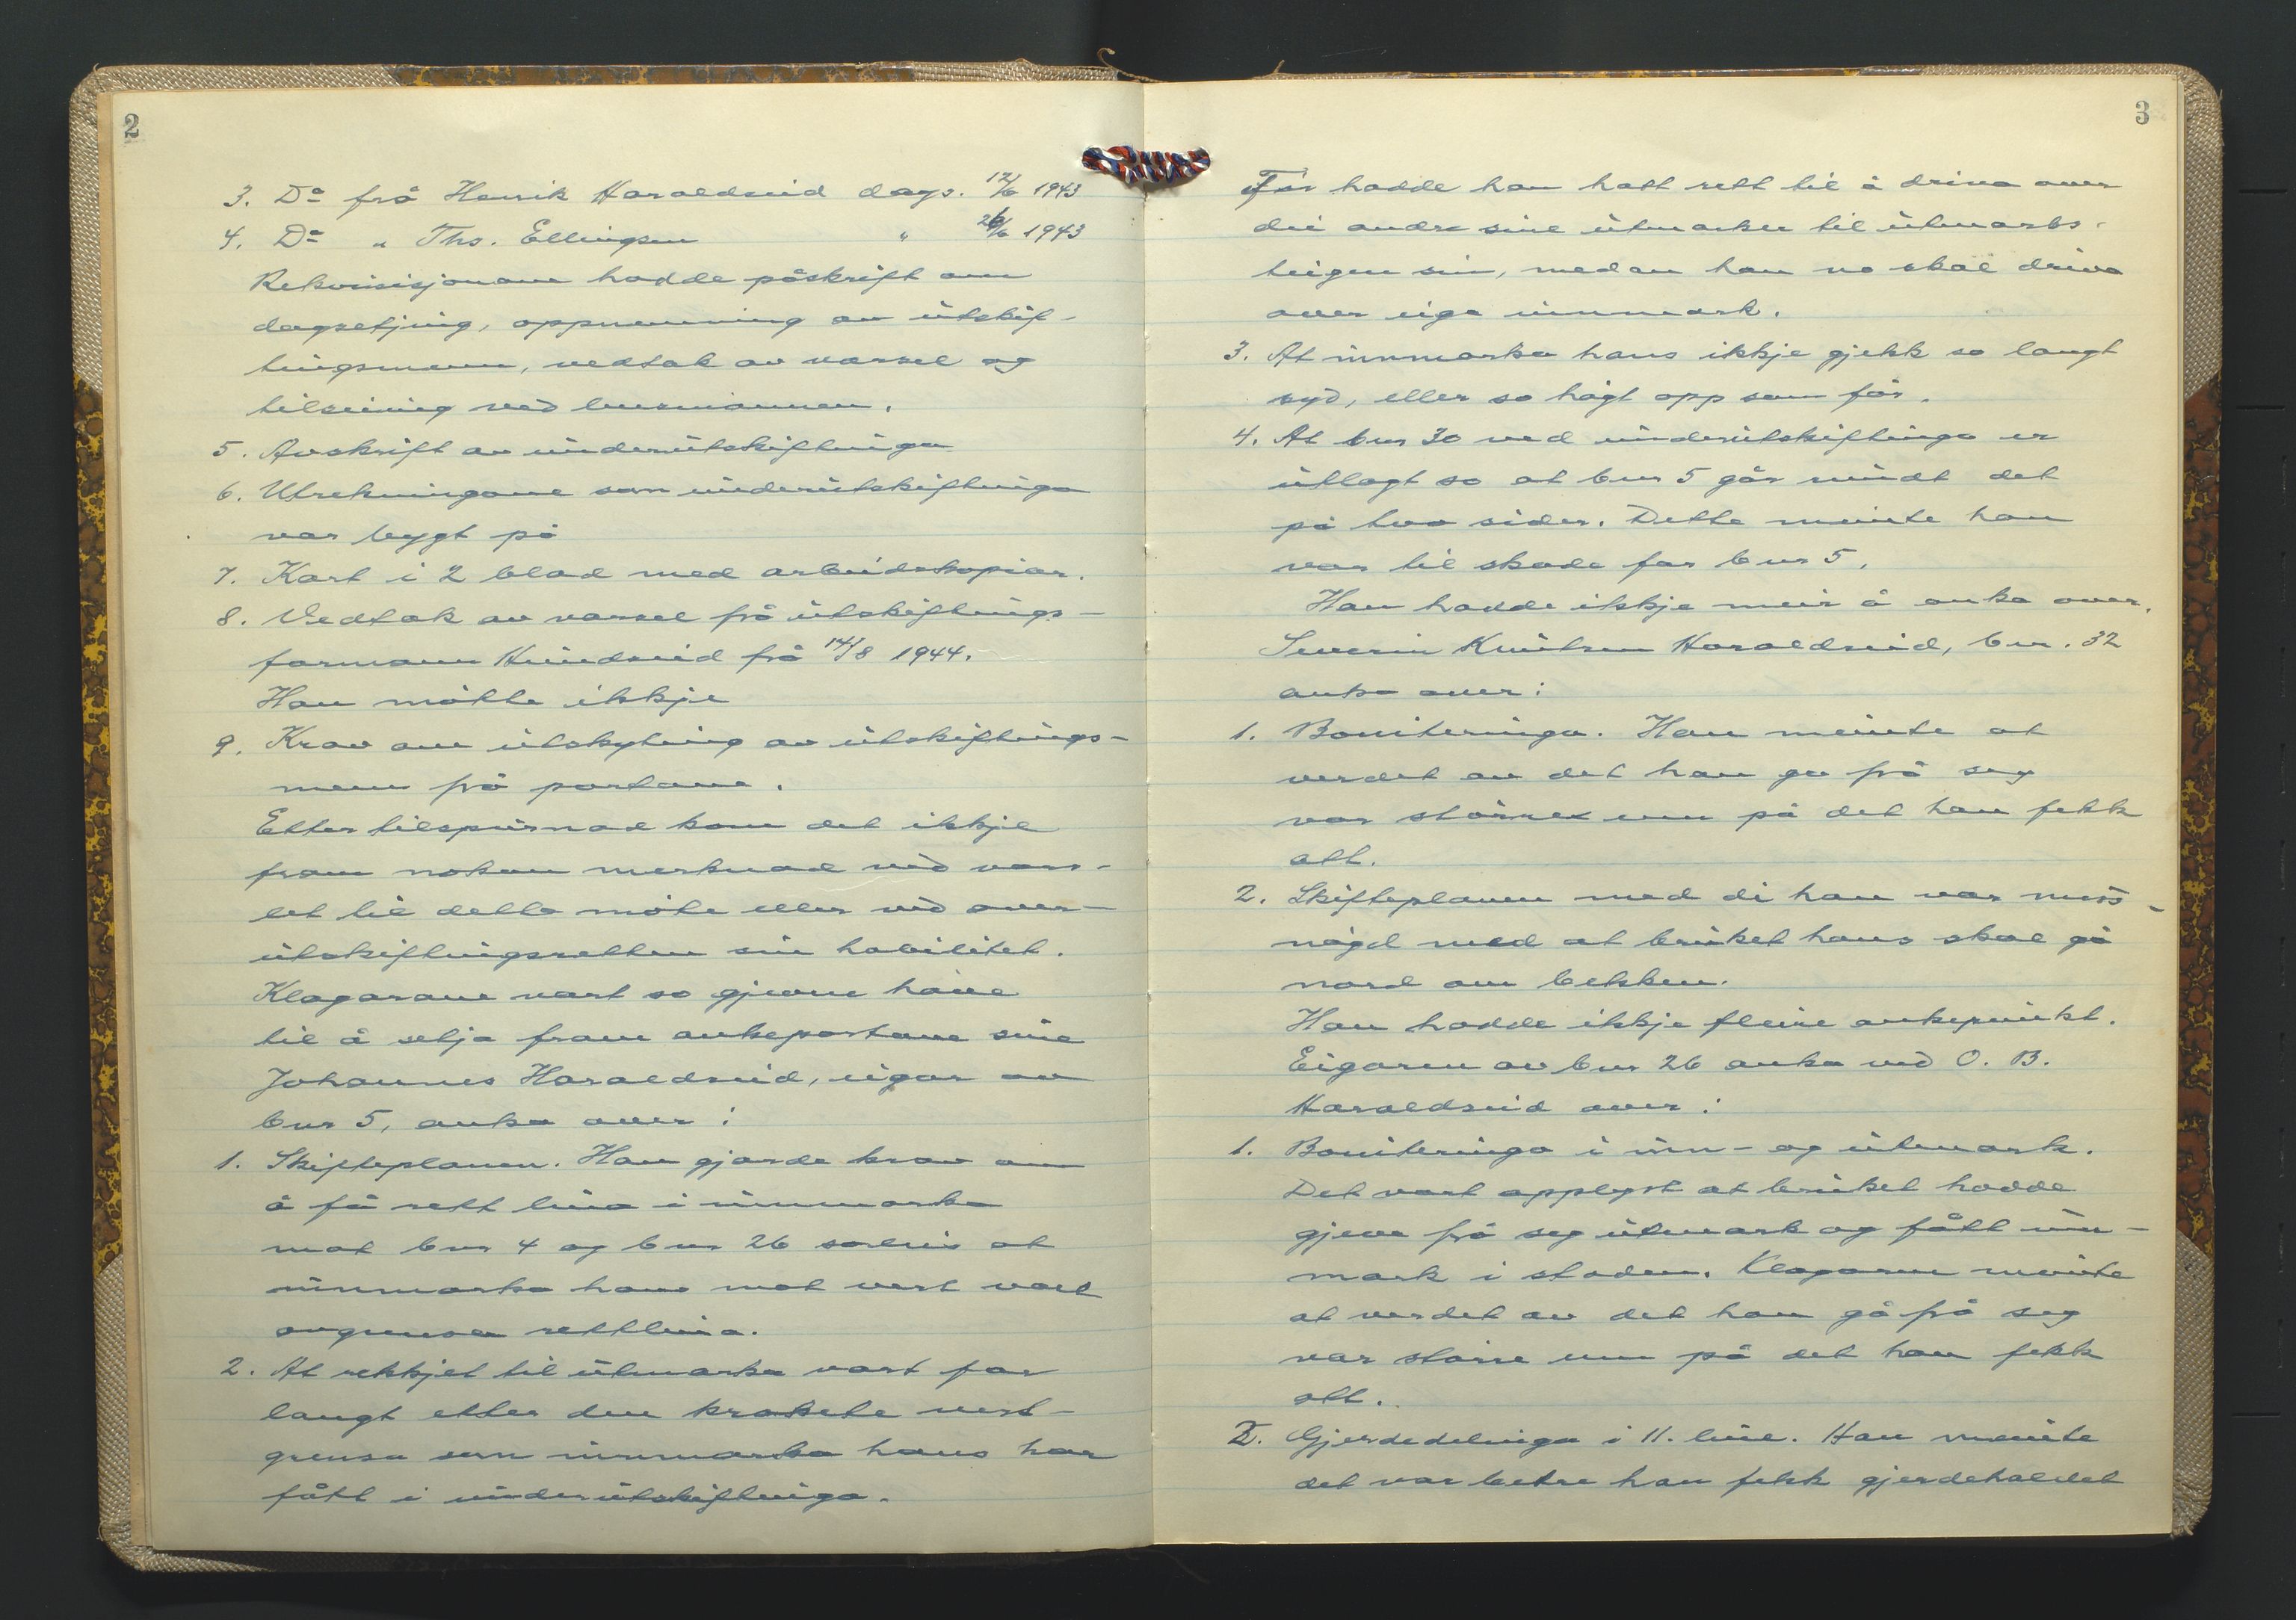 2
3. Do frå Henrik Haraldseid dags. 12/6 1943
4. Do " Ths. Ellingsen " 26/6 1943
Rekvisisjonane hadde påskrift om
dagsetjing, oppnemning av utskif-
tingsmenn, vedtak av varsel og
tilseiing ved lensmannen.
5. Avskrift av underutskiftinga
6. Utrekningane som underutskiftinga
var bygt på
7. Kart i 2 blad med arbeidskopiar.
8. Vedtak av varsel frå utskiftings-
formann Hundseid frå 14/8 1944.
Han møtte ikkje
9. Krav om utskyting av utskiftings-
menn frå partane.
Etter tilspurnad kom det ikkje
fram nokon merknad ved vars-
let til dette møte eller ved over-
utskiftingsretten sin habilitet.
Klagarane vart so gjevne høve
til å setja fram ankepostane sine
Johannes Haraldseid, eigar av
bnr 5, anka over:
1. Skifteplanen. Han gjorde krav om
å få rett lina i innmarka
mot bnr 4 og bnr 26 soleis at
innmarka hans mot vest vart
avgrensa rettlina.
2. At rekkjet til utmarka vart for
langt etter den krokete vest-
grensa som innmarka hans har
fått i underutskiftinga.
3
Før hadde han hatt rett til å driva over
dei andre sine utmarker til utmarks-
teigen sin, medan han no skal driva
over eiga innmark.
3. At innmarka hans ikkje gjekk so langt
syd, eller so høgt opp som før.
4. At bnr 30 ved underutskiftinga er
utlagt so at bnr 5 går rundt det
på tvo sider. Dette meinte han
var til skade for bnr 5.
Han hadde ikkje meir å anka over.
Severin Knutsen Haraldseid, bnr. 32
anka over:
1. Boniteringa. Han meinte at
verdet av det han ga frå seg
var større enn på det han fekk
att.
2. Skifteplanen med di han var mis-
nøgd med at bruket hans skal gå
nord om bekken.
Han hadde ikkje fleire ankepunkt.
Eigaren av bnr 26 anka ved O. B.
Haraldseid over:
1. Boniteringa i inn- og utmark.
Det vart opplyst at bruket hadde
gjeve frå seg utmark og fått inn-
mark i staden. Klagaren meinte
at verdet av det han ga frå seg
var større enn på det han fekk
att.
2. Gjerdedelinga i 11. line. Han meinte
det var betre han fekk gjerdehaldet